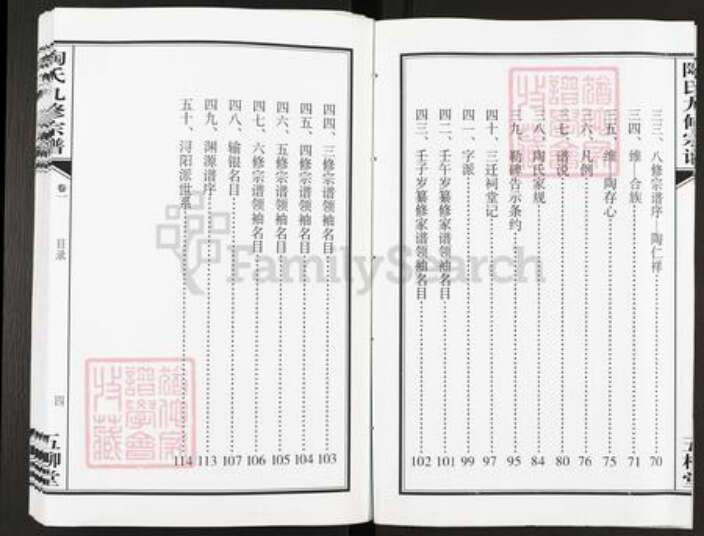 陶氏九修宗谱
三三、八修宗谱序 陶仁祥 70
三四、维 合族 71
三五、维 陶存心 75
三六、凡例 76
三七、谱说 80
三八、陶氏家规 84
三九、勒碑告示条约 95
四十、三迁祠堂记 97
四一、字派 99
四二、壬午岁纂修家谱领袖名目 101
四三、壬子岁纂修家谱领袖名目 102
四四、三修宗谱领袖名目 103
四五、四修宗谱领袖名目 104
四六、五修宗谱领袖名目 105
四七、六修宗谱领袖名目 106
四八、输银名目 107
四九、渊源谱序 113
五十、浔阳派世系 114
陶氏九修宗谱
卷一
目录
四
五柳堂
FamilySearch